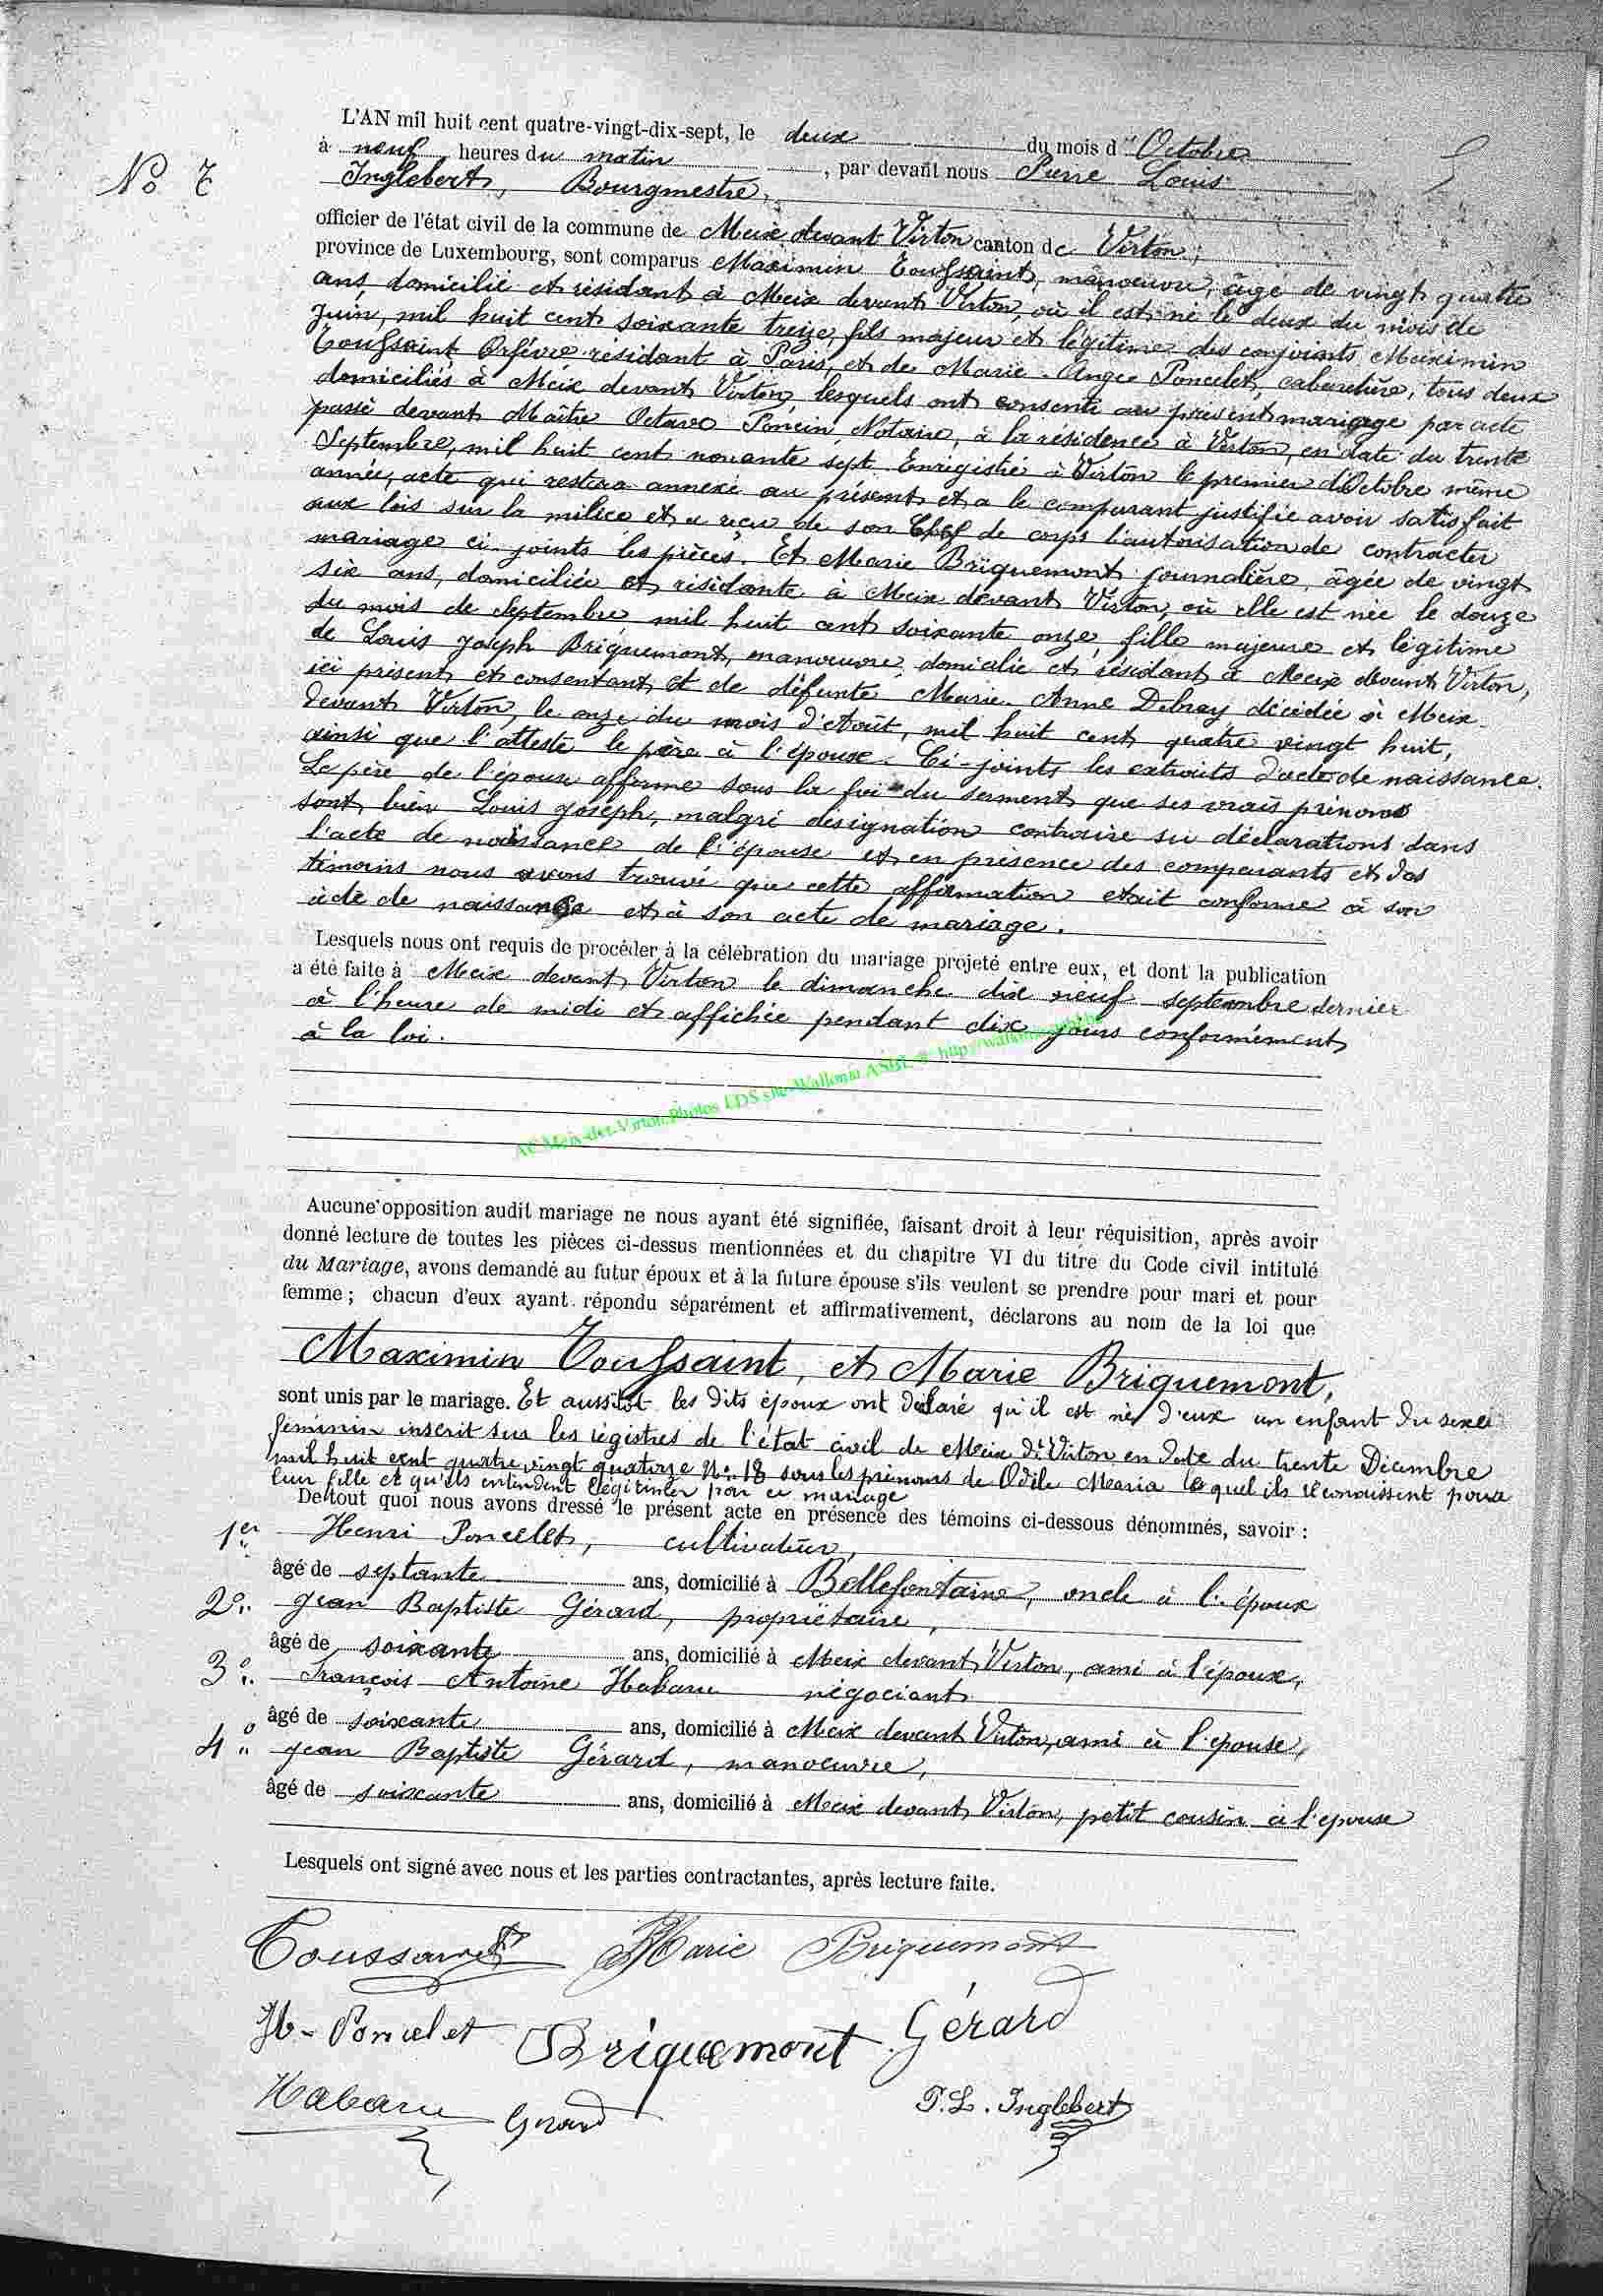 No 7
L'AN mil huit cent quatre-vingt-dix-sept, le deux du mois d'Octobre
à neuf heures du matin, par devant nous Pierre Louis
Inglebert, Bourgmestre,
officier de l'état civil de la commune de Meix devant Virton canton de Virton,
province de Luxembourg, sont comparus Maximin Toussaint, manoeuvre, âgé de vingt quatre
ans, domicilié et résidant à Meix devant Virton, où il est né le deux du mois de
Juin, mil huit cent soixante treize, fils majeur et légitime des conjoints Maximin
Toussaint, Orfèvre résidant à Paris, et de Marie-Ange Poncelet, cabaretière, tous deux
domiciliés à Meix devant Virton, lesquels ont consenti au présent mariage par acte
passé devant Maître Octave Poncin, Notaire, à la résidence à Virton, en date du trente
Septembre, mil huit cent nonante sept. Enregistré à Virton le premier d'Octobre même
année, acte qui restera annexé au présent et a le comparant justifié avoir satisfait
aux lois sur la milice et a reçu de son Chef de corps l'autorisation de contracter
mariage ci-joints les pièces. Et Marie Briquemont journalière, âgée de vingt
six ans, domiciliée et résidante à Meix devant Virton, où elle est née le douze
du mois de Septembre mil huit cent soixante onze, fille majeure et légitime
de Louis Joseph Briquemont, manoeuvre, domicilié et résidant à Meix devant Virton,
ici présent et consentant et de défunte Marie Anne Debray, décédée à Meix-
devant Virton, le onze du mois d'Août, mil huit cent quatre vingt huit,
ainsi que l'atteste le père à l'épouse. Ci-joints les extraits d'acte de naissance.
Le père de l'épouse affirme sous la foi du serment que ses vrais prénoms
sont bien Louis Joseph, malgré désignation contraire su déclarations dans
l'acte de naissance de l'épouse et en présence des comparants et des
témoins nous avons trouvé que cette affirmation était conforme à son
acte de naissance et à son acte de mariage.
Lesquels nous ont requis de procéder à la célébration du mariage projeté entre eux, et dont la publication
a été faite à Meix devant Virton le dimanche dix neuf septembre dernier
à l'heure de midi et affichée pendant dix jours conformément
à la loi.
AC Meix-dev-Virton Photos EDS site Wallonia ASBL
Aucune opposition audit mariage ne nous ayant été signifiée, faisant droit à leur réquisition, après avoir
donné lecture de toutes les pièces ci-dessus mentionnées et du chapitre VI du titre du Code civil intitulé
du Mariage, avons demandé au futur époux et à la future épouse s'ils veulent se prendre pour mari et pour
femme; chacun d'eux ayant répondu séparément et affirmativement, déclarons au nom de la loi que
Maximin Toussaint, et Marie Briquemont,
sont unis par le mariage. Et aussitôt les dits époux ont déclaré qu'il est né d'eux un enfant du sexe
féminin inscrit sur les régistres de l'état civil de Meix dt Virton en date du trente Décembre
mil huit cent quatre vingt quatorze No 18 sous les prénoms de Odile Maria le quel ils reconnaissent pour
leur fille et qu'ils entendent légitimer par ce mariage
De tout quoi nous avons dressé le présent acte en présence des témoins ci-dessous dénommés, savoir :
1er Henri Poncelet, cultivateur,
âgé de septante ans, domicilié à Bellefontaine, oncle à l'époux
2° Jean Baptiste Gérard, propriétaire,
âgé de soixante ans, domicilié à Meix devant Virton, ami à l'époux,
3° François Antoine Habaru négociant
âgé de soixante ans, domicilié à Meix devant Virton, ami à l'épouse,
4° Jean Baptiste Gérard, manoeuvre,
âgé de soixante ans, domicilié à Meix devant Virton, petit cousin à l'épouse
Lesquels ont signé avec nous et les parties contractantes, après lecture faite.
Toussaint Marie Briquemont
H-Poncelet Briquemont Gérard
Habaru Gérard P.L. Inglebert